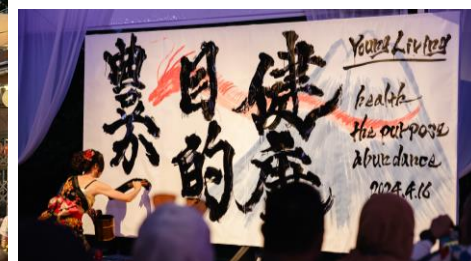 健康
目的
豊か
Young Living
health
the purpose
abundance
2024.4.16